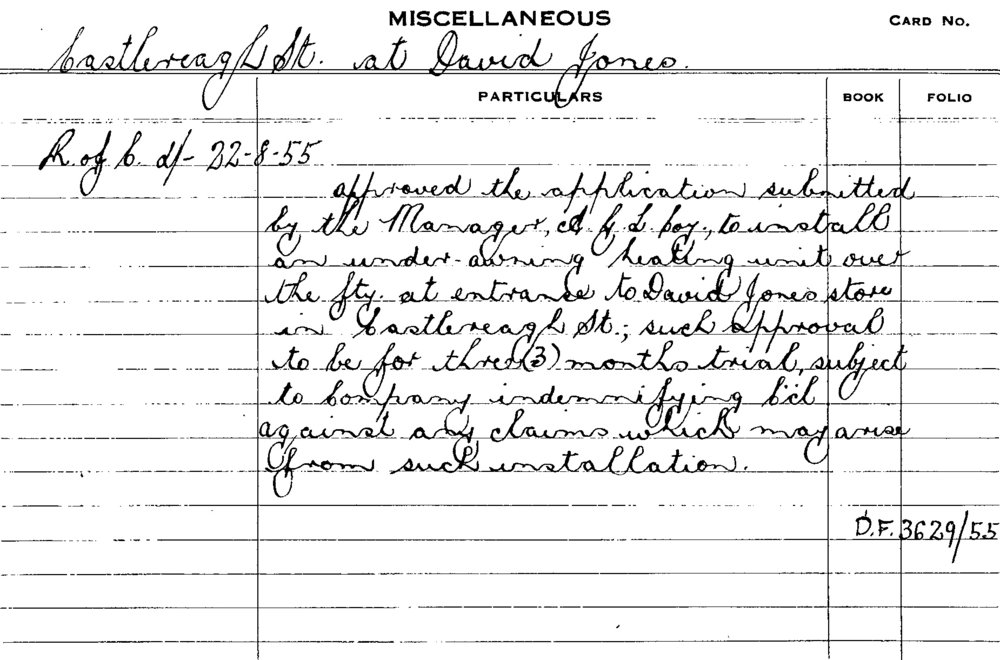 MISCELLANEOUS
CARD NO.
Castlereagh St. at David Jones.
PARTICULARS BOOK FOLIO
R. of C. d/- 22-8-55
approved the application submitted
by the Manager, A. G. L. Coy., to install
an under-awning heating unit over
the fty. at entrance to David Jones store
in Castlereagh St.; such approval
to be for three (3) months trial, subject
to Company indemnifying C'cl
against any claims which may arise
from such installation.
D.F. 3629/55